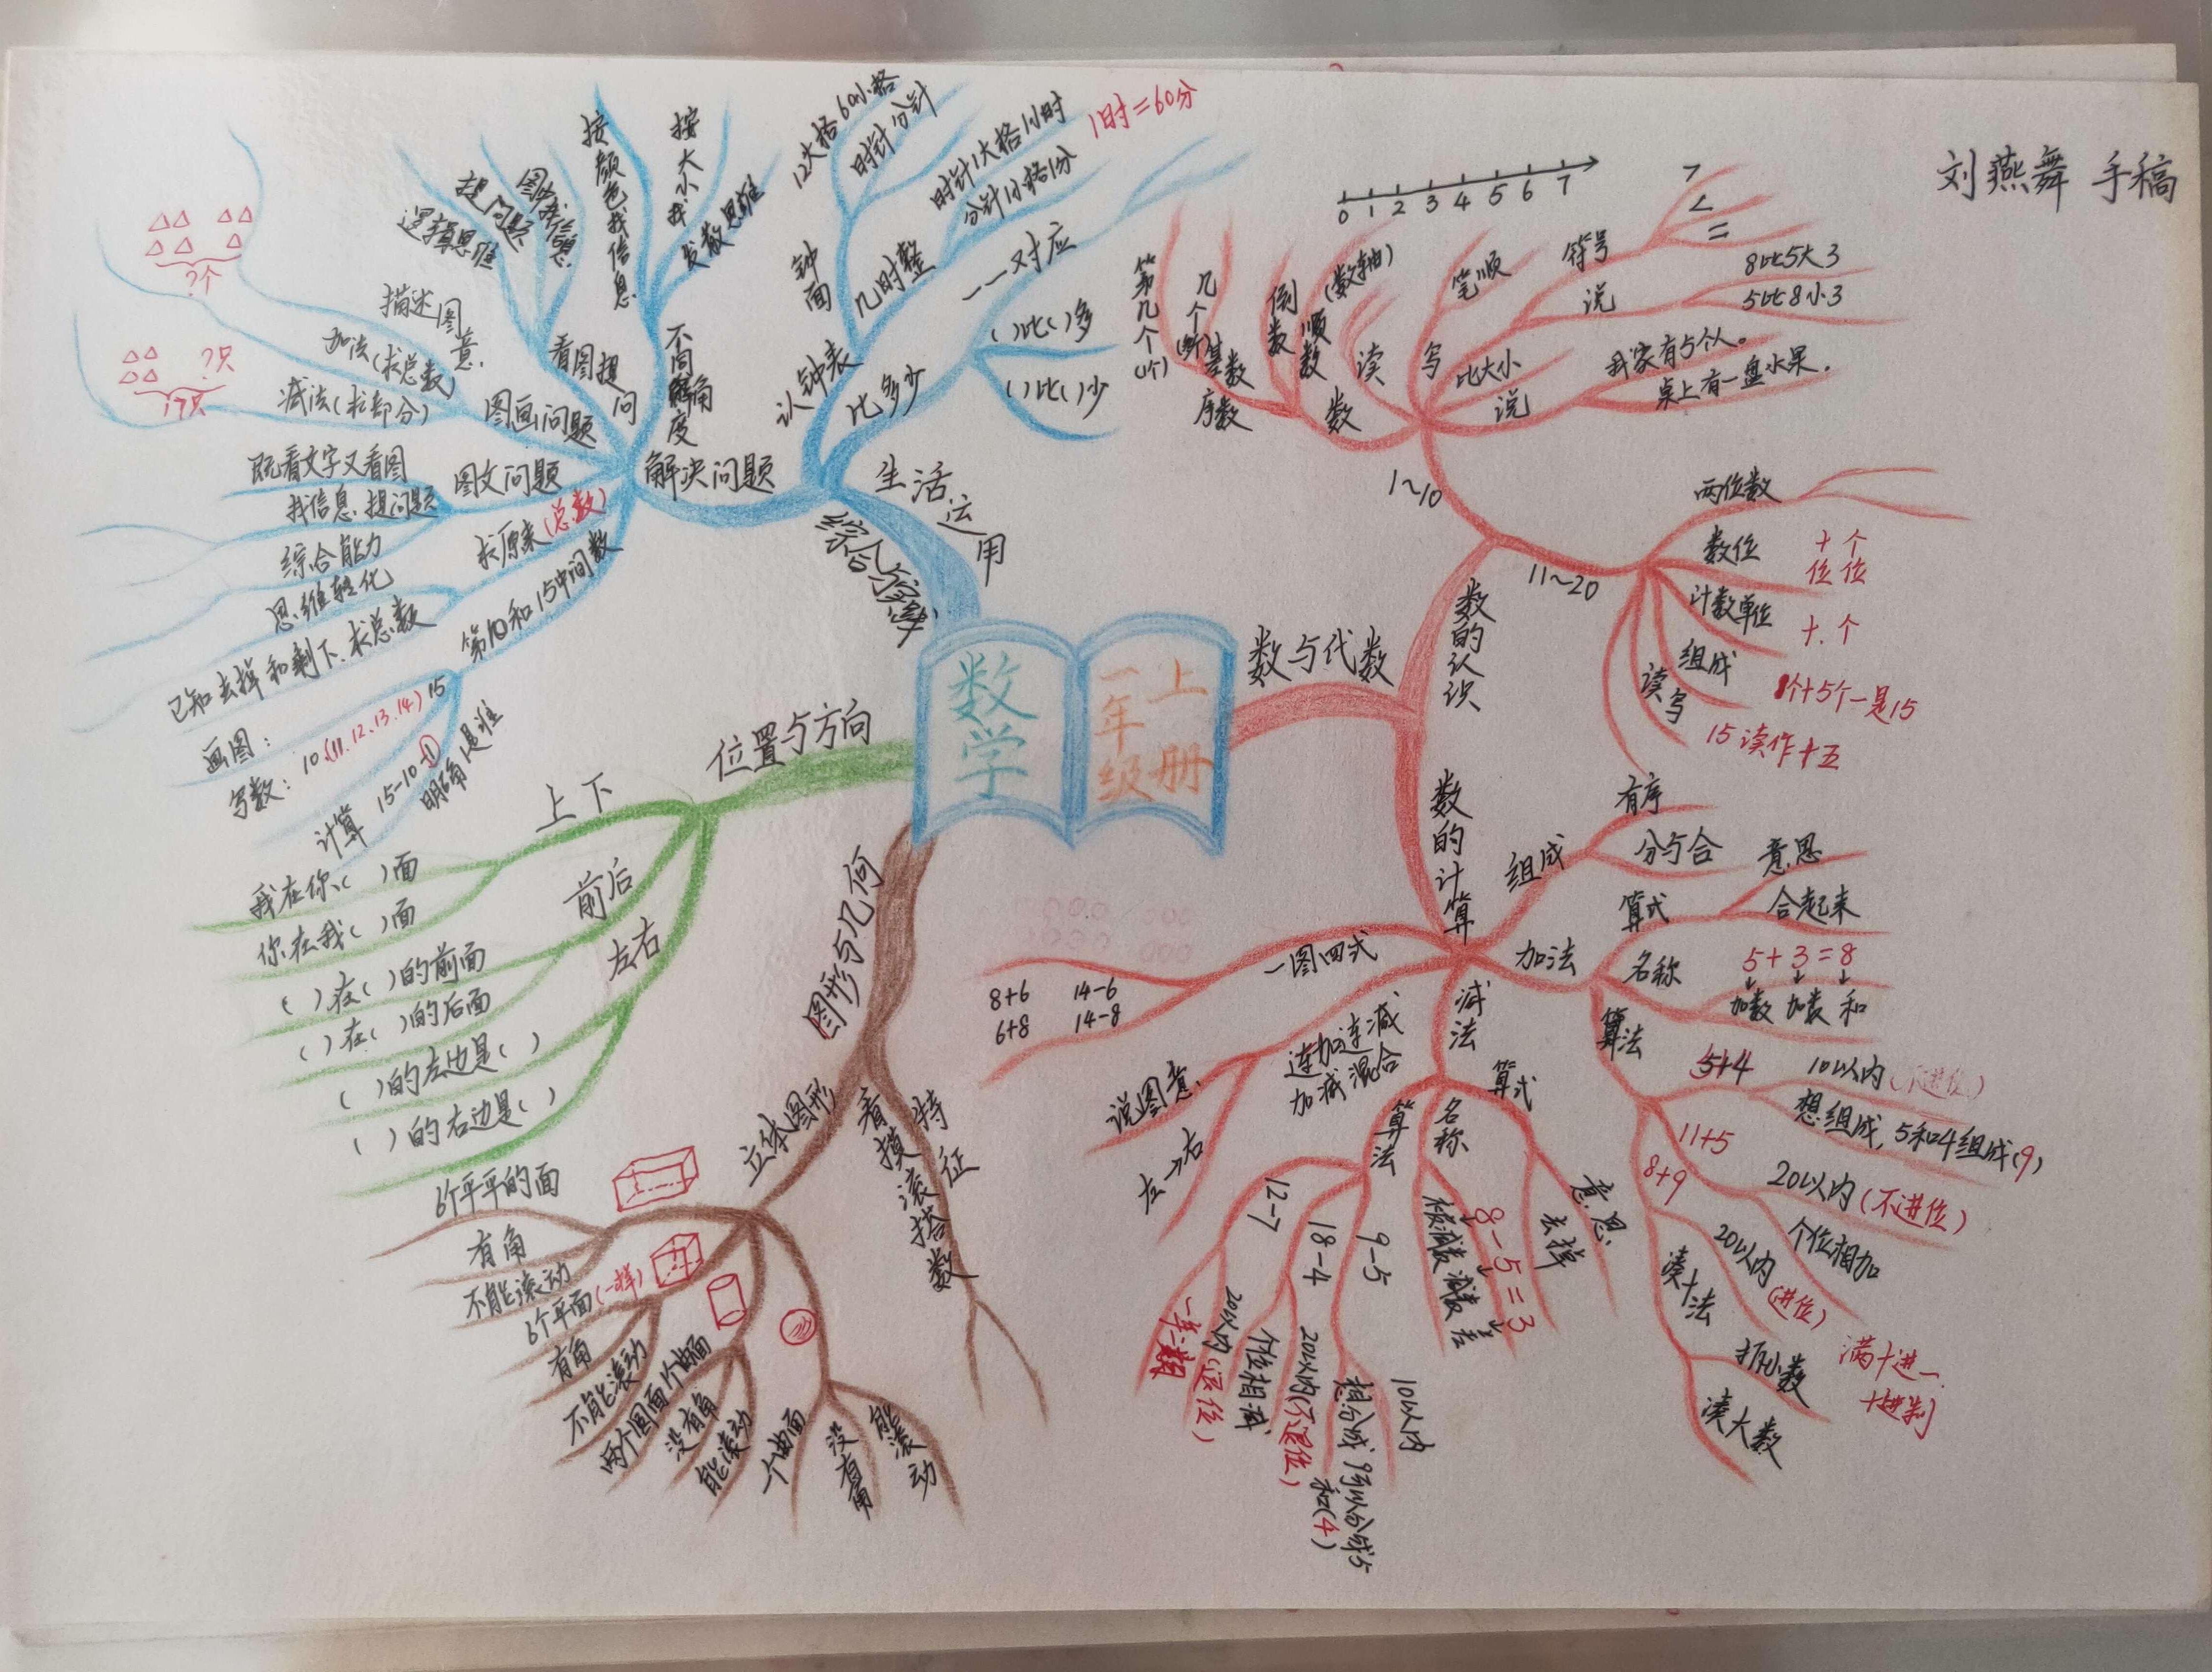 刘燕舞 手稿
数学
一年级
上册
数与代数
数的认识
1~10
数
序数
第几个(1个)
基数
几个
倒数
顺数
(数轴)
0 1 2 3 4 5 6 7
读
写
笔顺
比大小
符号
>
<
=
说
8比5大3
5比8小3
说
我家有5个人。
桌上有一盘水果.
11~20
两位数
数位
十位 个位
计数单位
十.个
组成
1个十5个一是15
读写
15读作十五
数的计算
组成
有序
分与合
加法
算式
意思
合起来
名称
5+3=8
加数 加数 和
算法
5+4
10以内(不进位)
想组成,5和4组成(9)
11+5
20以内(不进位)
个位相加
8+9
20以内(进位)
凑十法
拆小数
凑大数
满十进一.
十进制
减法
算式
意思.
去掉
名称
8-5=3
被减数 减数 差
算法
9-5
10以内
想分成,9可以分成5和(4)
18-4
20以内(不退位)
个位相减
12-7
20以内(退位)
连加连减
加减混合
说图意.
左→右
一图四式
8+6 14-6
6+8 14-8
综合与实践
生活运用
比多少
一一对应
( )比( )多
( )比( )少
认钟表
钟面
12大格60小格
时针 分针
几时整
时针1大格1小时
分针1小格1分
1时=60分
解决问题
不同角度
按大小找.
发散思维
按颜色找信息
看图提问
图中找信息.
提问题
逻辑思维
图画问题
描述图意.
加法(求总数)
?个
减法(求部分)
?只
图文问题
既看文字又看图
找信息.提问题
综合能力
求原来(总数)
思维转化
已知去掉和剩下.求总数
第10和15中间数
画图:
写数:10(11.12.13.14)15
计算 15-10-1
明确1是谁
位置与方向
上下
我在你( )面
你在我( )面
前后
( )在( )的前面
( )在( )的后面
左右
( )的左边是( )
( )的右边是( )
图形与几何
立体图形
6个平平的面
有角
不能滚动
6个平面(一样)
有角
不能滚动
两个圆面1个曲面
没有角
能滚动
一个曲面
没有角
能滚动
特征
看摸滚搭数